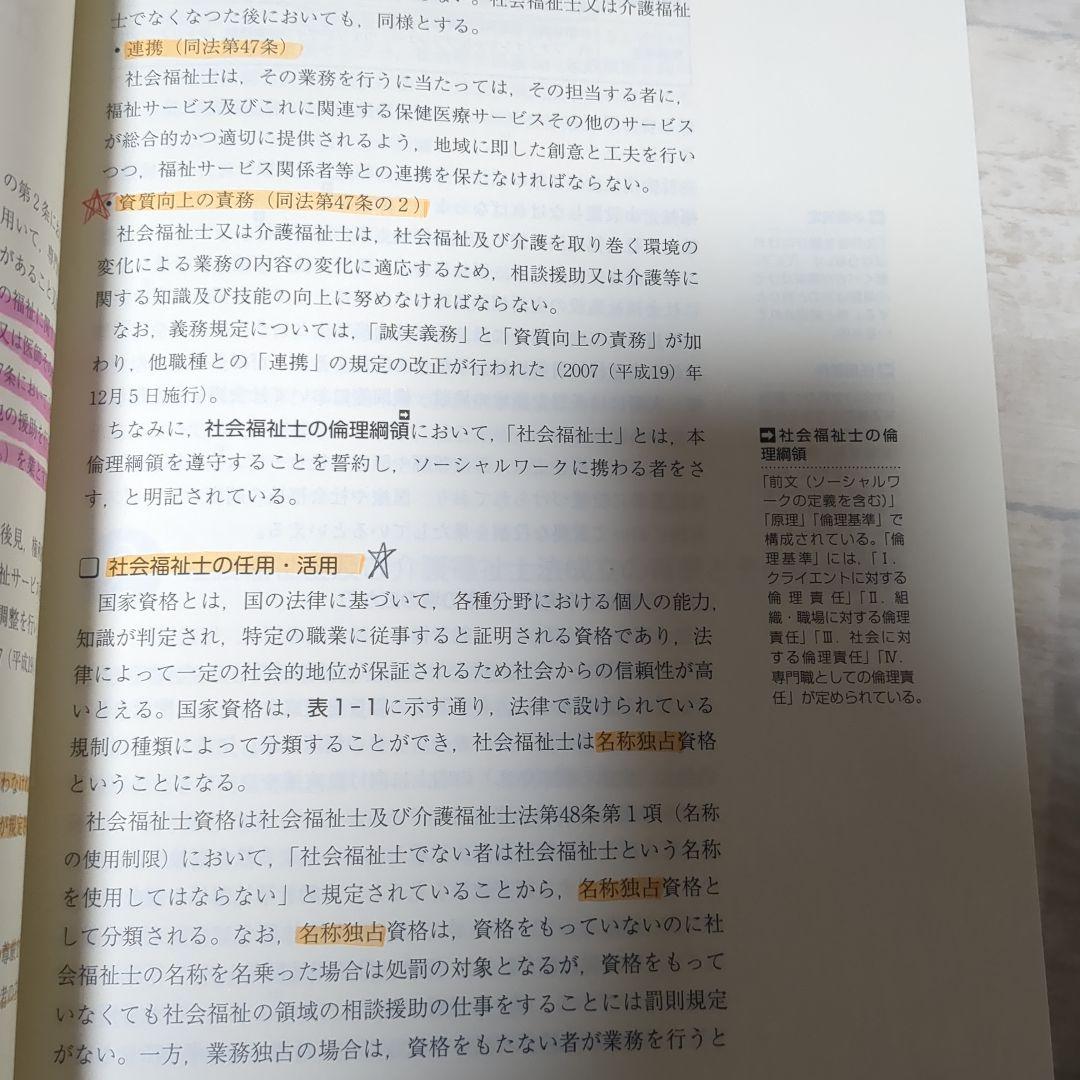 士でなくなつた後においても，同様とする。
・連携（同法第47条）
社会福祉士は，その業務を行うに当たっては，その担当する者に，
福祉サービス及びこれに関連する保健医療サービスその他のサービス
が総合的かつ適切に提供されるよう，地域に即した創意と工夫を行い
つつ，福祉サービス関係者等との連携を保たなければならない。
・資質向上の責務（同法第47条の２）
社会福祉士又は介護福祉士は，社会福祉及び介護を取り巻く環境の
変化による業務の内容の変化に適応するため，相談援助又は介護等に
関する知識及び技能の向上に努めなければならない。
なお，義務規定については，「誠実義務」と「資質向上の責務」が加
わり，他職種との「連携」の規定の改正が行われた（2007（平成19）年
12月５日施行）。
ちなみに，社会福祉士の倫理綱領において，「社会福祉士」とは，本
倫理綱領を遵守することを誓約し，ソーシャルワークに携わる者をさ
す，と明記されている。
社会福祉士の任用・活用
国家資格とは，国の法律に基づいて，各種分野における個人の能力，
知識が判定され，特定の職業に従事すると証明される資格であり，法
律によって一定の社会的地位が保証されるため社会からの信頼性が高
いといえる。国家資格は，表１−１に示す通り，法律で設けられている
規制の種類によって分類することができ，社会福祉士は名称独占資格
ということになる。
社会福祉士資格は社会福祉士及び介護福祉士法第48条第１項（名称
の使用制限）において，「社会福祉士でない者は社会福祉士という名称
を使用してはならない」と規定されていることから，名称独占資格と
して分類される。なお，名称独占資格は，資格をもっていないのに社
会福祉士の名称を名乗った場合は処罰の対象となるが，資格をもって
いなくても社会福祉の領域の相談援助の仕事をすることには罰則規定
がない。一方，業務独占の場合は，資格をもたない者が業務を行うと
社会福祉士の倫
理綱領
「前文（ソーシャルワ
ークの定義を含む）」
「原理」「倫理基準」で
構成されている。「倫
理基準」には，「Ⅰ．
クライエントに対する
倫理責任」「Ⅱ．組
織・職場に対する倫理
責任」「Ⅲ．社会に対
する倫理責任」「Ⅳ．
専門職としての倫理責
任」が定められている。